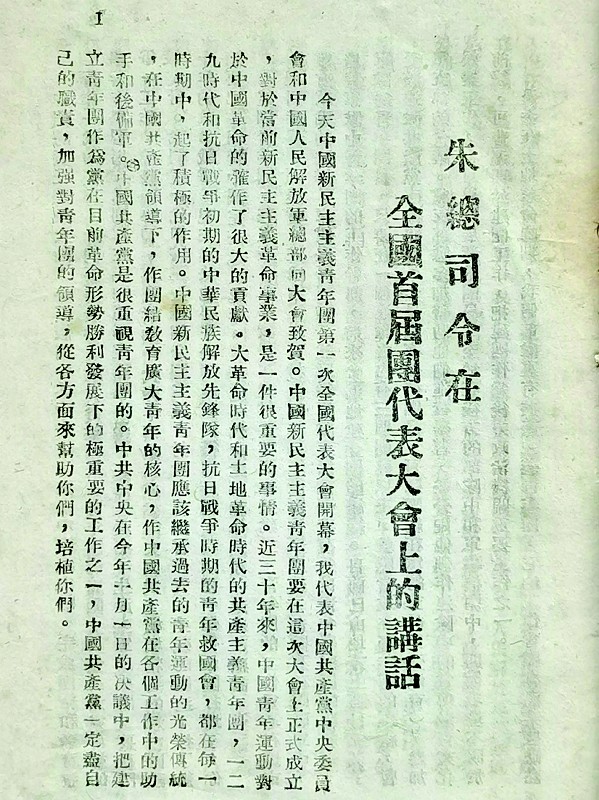 1
朱總司令在
全國首屆團代表大會上的講話
今天中國新民主主義青年團第一次全國代表大會開幕，我代表中國共產黨中央委員
會和中國人民解放軍總部向大會致賀。中國新民主主義青年團要在這次大會上正式成立
，對於當前新民主主義革命事業，是一件很重要的事情。近三十年來，中國青年運動對
於中國革命的確作了很大的貢獻。大革命時代和土地革命時代的共產主義青年團，一二
九時代和抗日戰爭初期的中華民族解放先鋒隊，抗日戰爭時期的青年救國會，都在每一
時期中，起了積極的作用。中國新民主主義青年團應該繼承過去的青年運動的光榮傳統
，在中國共產黨領導下，作團結教育廣大青年的核心，作中國共產黨在各個工作中的助
手和後備軍。中國共產黨是很重視青年團的。中共中央在今年一月一日的決議中，把建
立青年團作為黨在目前革命形勢勝利發展下的極重要的工作之一，中國共產黨一定盡自
己的職責，加强對青年團的領導，從各方面來幫助你們，培植你們。